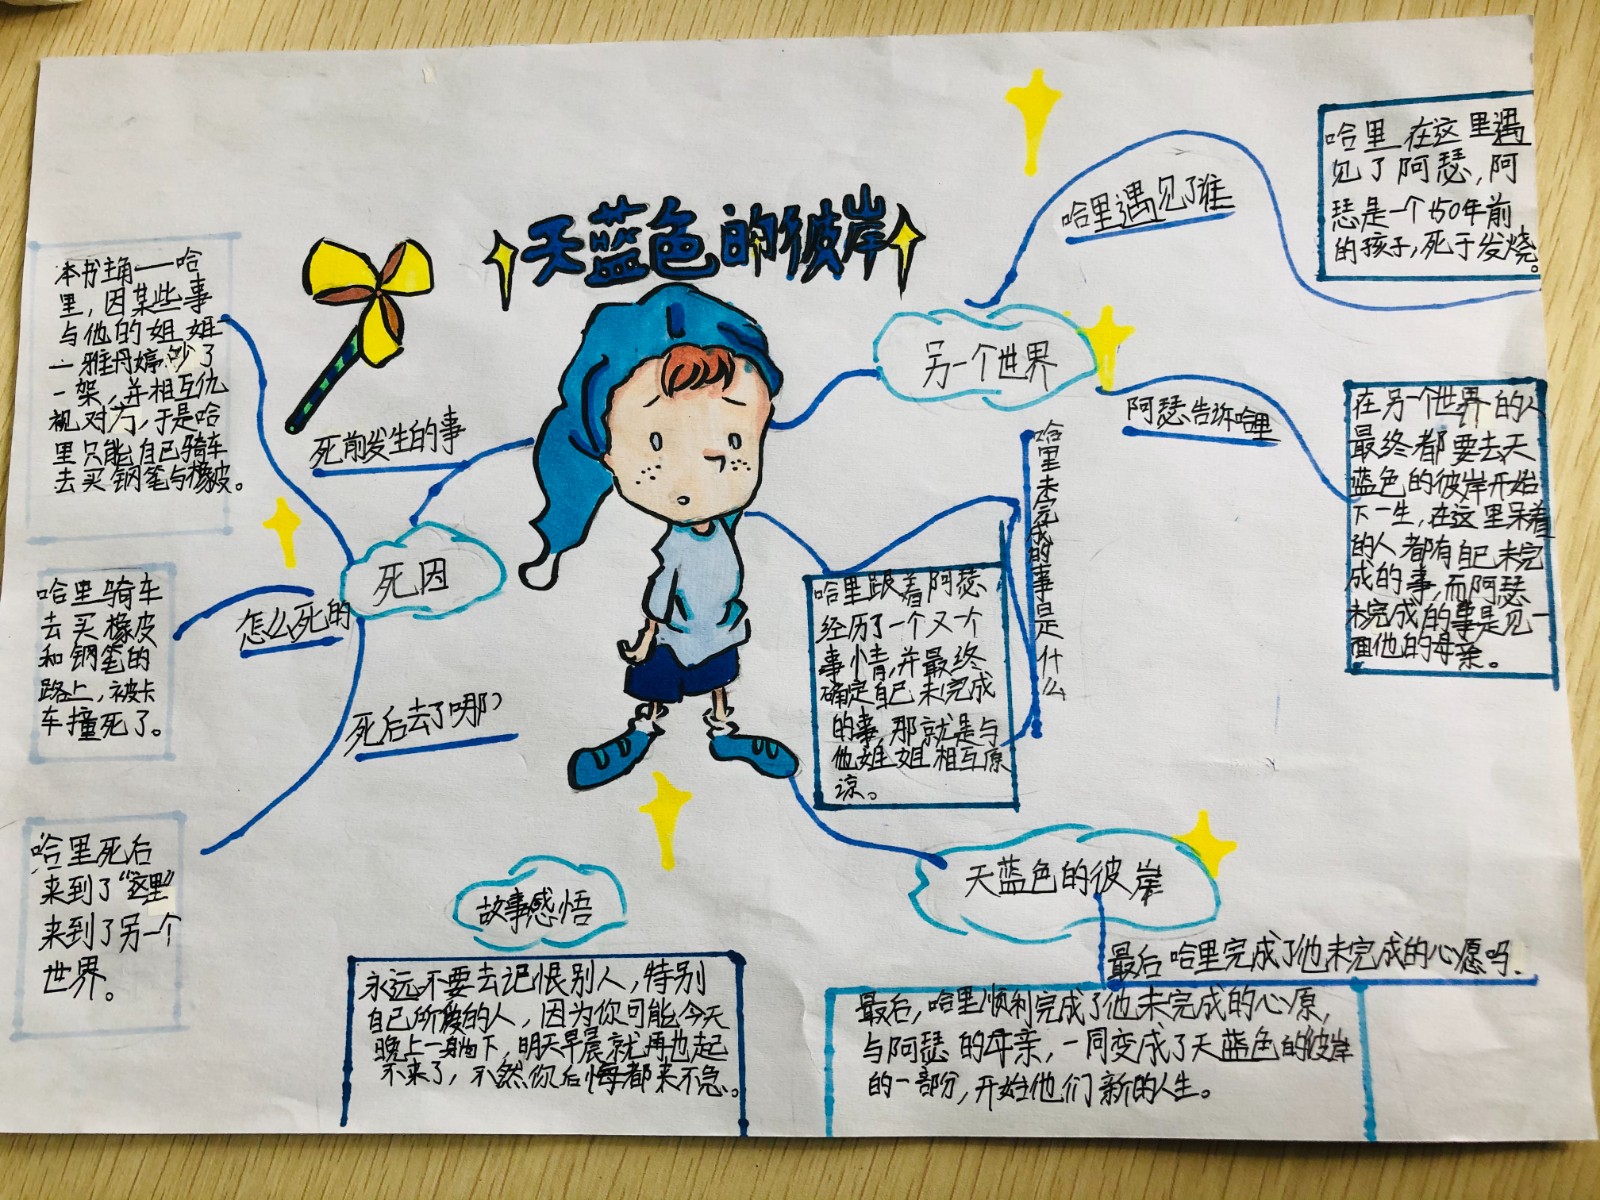 天蓝色的彼岸
死因
死前发生的事
本书主角——哈
里，因某些事
与他的姐姐
一雅丹婷吵了
一架，并相互仇
视对方，于是哈
里只能自己骑车
去买钢笔与橡皮。
怎么死的
哈里骑车
去买橡皮
和钢笔的
路上，被卡
车撞死了。
死后去了哪
哈里死后
来到了“这里”
来到了另一个
世界。
另一个世界
哈里遇见了谁
哈里在这里遇
见了阿瑟，阿
瑟是一个150年前
的孩子，死于发烧。
阿瑟告诉哈里
在另一个世界的人
最终都要去天
蓝色的彼岸开始
下一生，在这里呆着
的人都有自己未完
成的事，而阿瑟
未完成的事是见一
面他的母亲。
哈里未完成的事是什么
哈里跟着阿瑟
经历了一个又一个
事情，并最终
确定自己未完成
的事，那就是与
他姐姐相互原
谅。
天蓝色的彼岸
最后哈里完成了他未完成的心愿吗.
最后，哈里顺利完成了他未完成的心原，
与阿瑟的母亲，一同变成了天蓝色的彼岸
的一部分，开始他们新的人生。
故事感悟
永远不要去记恨别人，特别
自己所爱的人，因为你可能今天
晚上一躺下，明天早晨就再也起
不来了，不然你后悔都来不急。